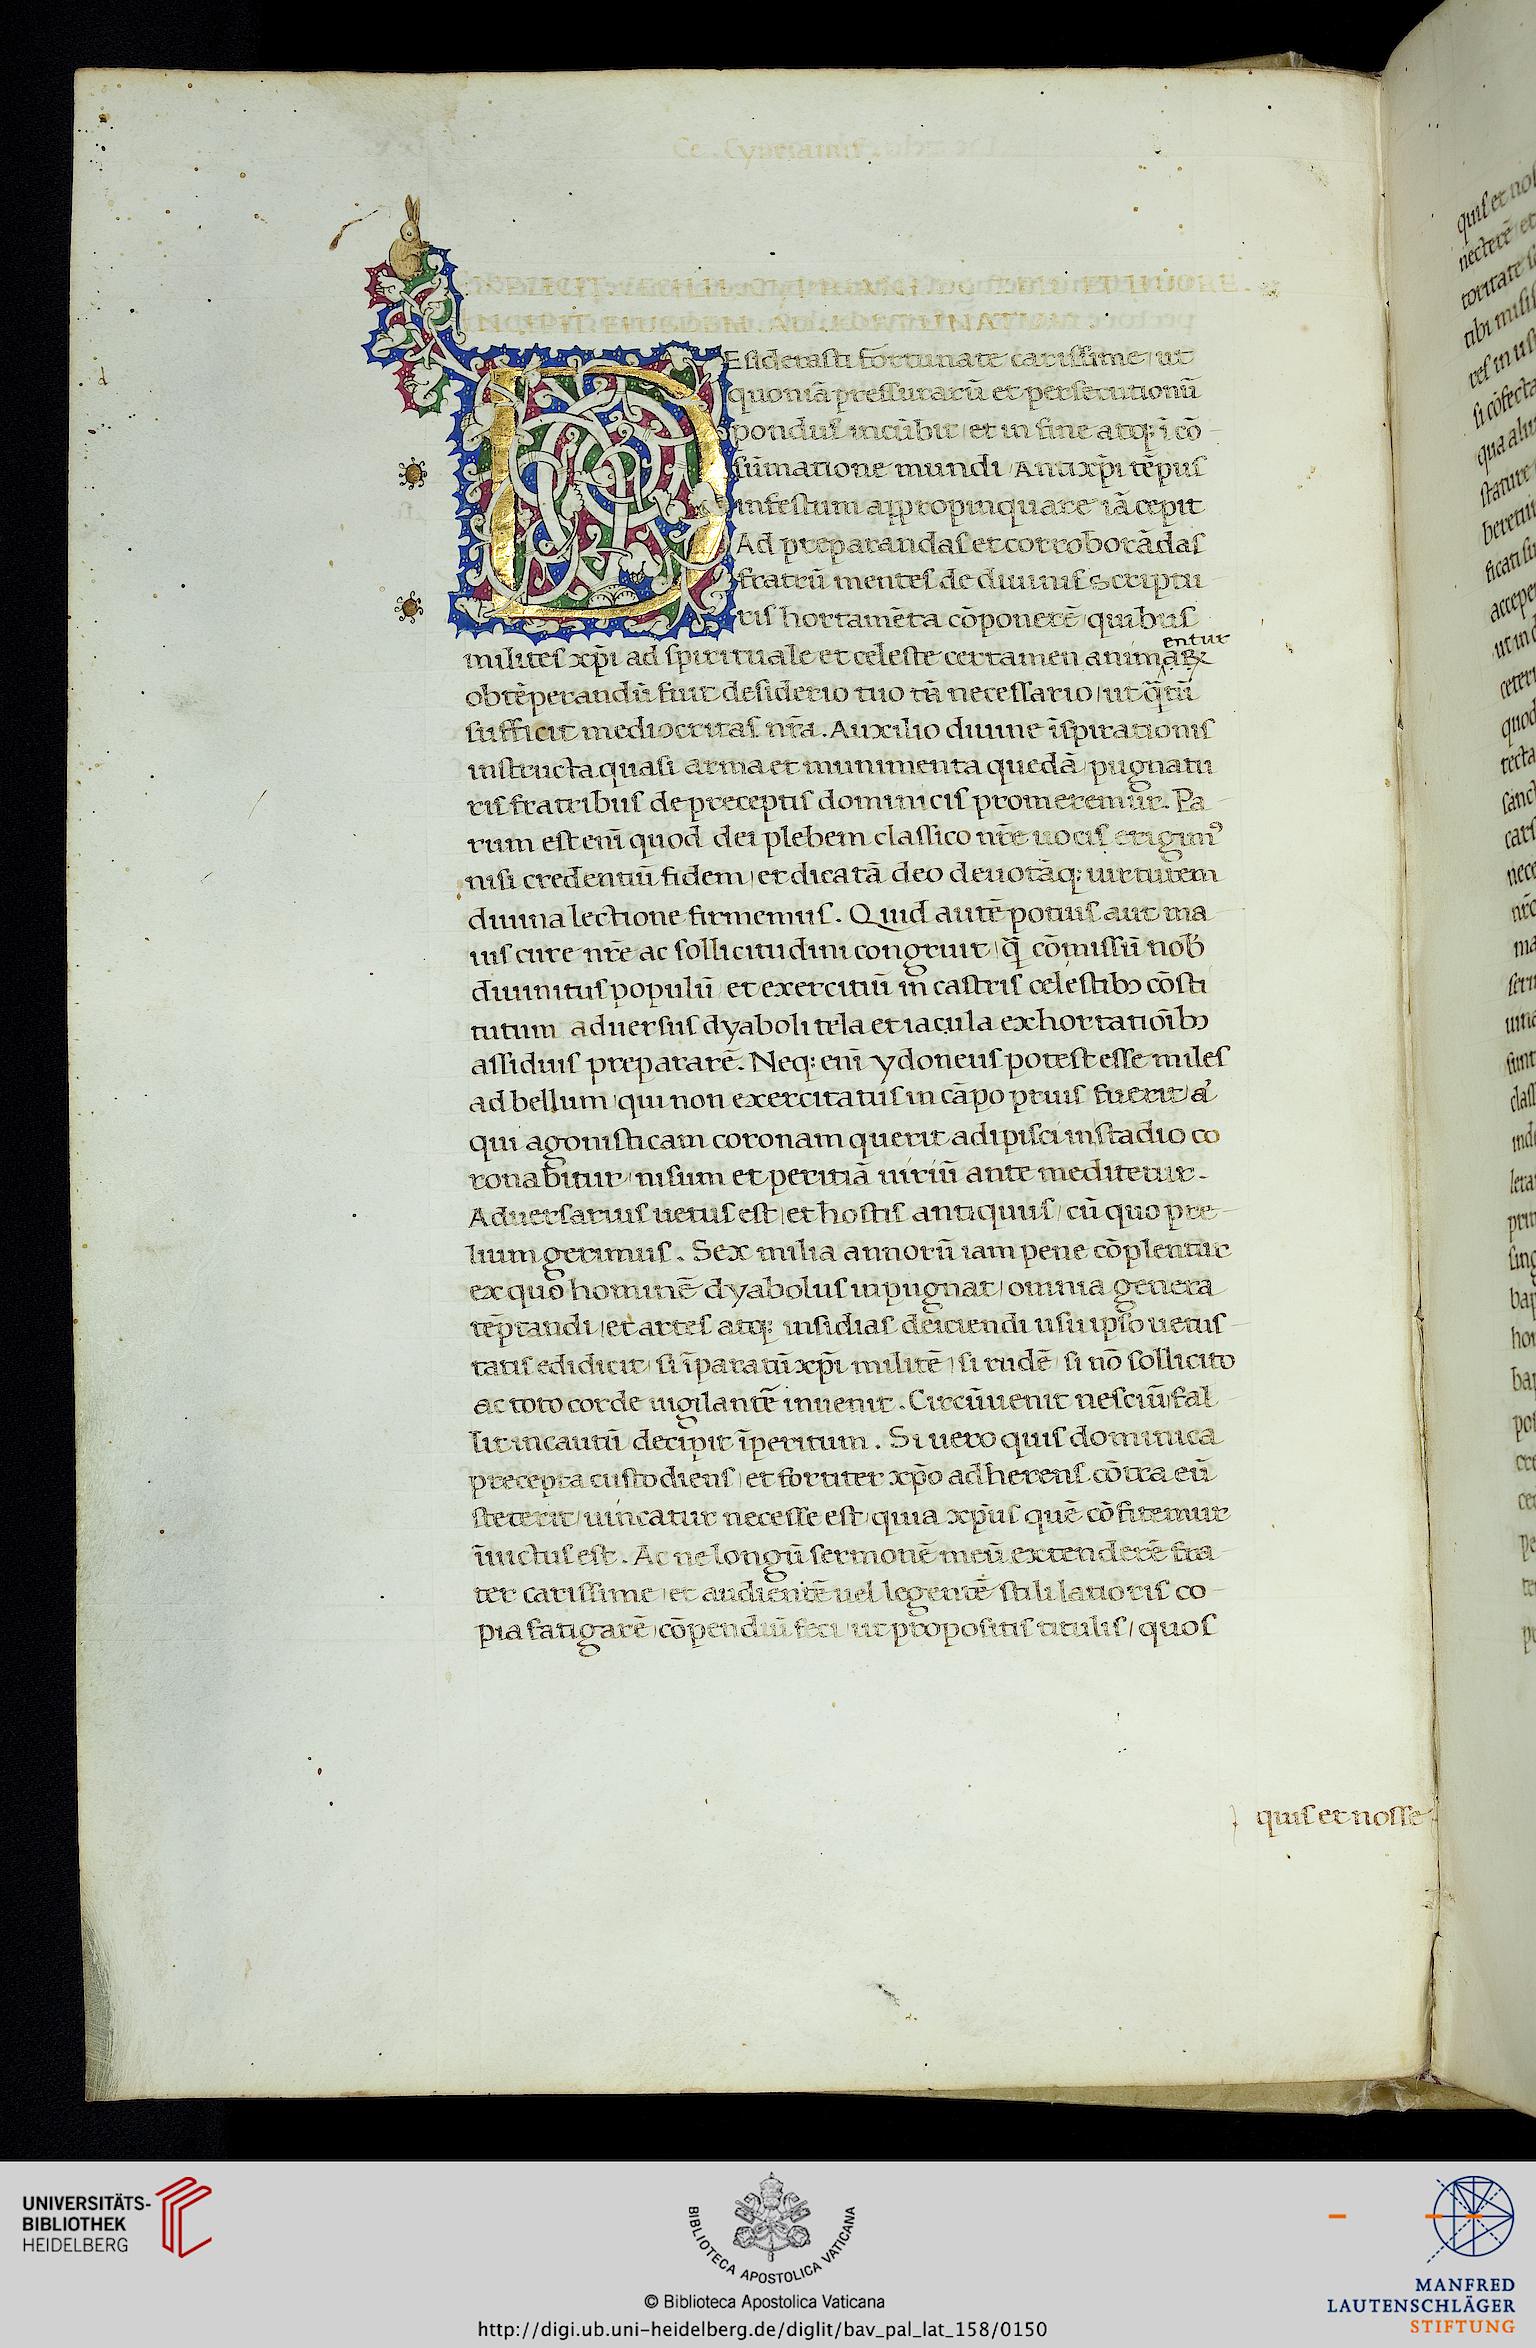 DEsiderasti fortunate carissime, ut
quoniā pressurarū et persecutionū
pondus incūbit, et in fine atq; ī cō
sūmatione mundi Antixp̄i tēpus
infestum appropinquare iā cepit
Ad preparandas et corroborādas
fratrū mentes de diuinis scriptu
ris hortamēta cōponerē quibus
entur
milites xp̄i ad spirituale et celeste certamen animarx
obtēperandū fuit desiderio tuo tā necessario, ut q̄tū
sufficit mediocritas nr̄a. Auxilio diuine īspirationis
instructa quasi arma et munimenta quedā pugnatu
ris fratribus de preceptis dominicis promeremur. Pa
rum est enī quod dei plebem classico nr̄e uocis erigim᾿
nisi credentiū fidem, et dicatā deo deuotāq; uirtutem
diuina lectione firmemus. Quid autē potius aut ma
ius cure nr̄e ac sollicitudini congruit, q̄ cōmissū nob̄
diuinitus populū et exercitiū in castris celestibꝫ cōsti
tutum aduersus dyaboli tela et iacula exhortatiōibꝫ
assiduis prepararē. Neq; enī ydoneus potest esse miles
ad bellum, qui non exercitatus in cāpo prius fuerit, a᾿
qui agonisticam coronam querit adipisci in stadio co
ronabitur, nisum et peritiā uiriū ante meditetur.
Aduersarius uetus est, et hostis antiquus, cū quo pre
lium gerimus. Sex milia annorū iam pene cōplentur
ex quo hominē dyabolus inpugnat, omnia genera
tēptandi, et artes atq; insidias deiciendi usu ipso uetus
tatis edidicit, si īparatū xp̄i militē, si rudē, si nō sollicito
ac toto corde uigilantē inuenit. Circūuenit nesciū, fal
lit incautū decipit īperitum. Si uero quis dominica
precepta custodiens, et fortiter xp̄o adherens cōtra eū
steterit, uincatur necesse est, quia xp̄us quē cōfitemur
īuictus est. Ac ne longū sermonē meū extenderē fra
ter carissime, et audientē uel legentē stili latioris co
pia fatigarē, cōpendiū feci, ut propositis titulis, quos
quis et nosse
UNIVERSITÄTS-
BIBLIOTHEK
HEIDELBERG
BIBLIOTECA APOSTOLICA VATICANA
© Biblioteca Apostolica Vaticana
http://digi.ub.uni-heidelberg.de/diglit/bav_pal_lat_158/0150
MANFRED
LAUTENSCHLÄGER
STIFTUNG